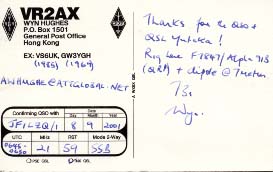 VR2AX
WYN HUGHES
P.O. Box 1501
General Post Office
Hong Kong
EX: VS6UK, GW3YGH
(1985) (1969)
AWHUGHE@ATTGLOBAL.NET
Confirming QSO with
Day Month Year
JF1LZQ/1 8 9 2001
UTC MHz RST Mode 2-Way
0646-
0650 21 59 SSB
PSE QSL QSL
Thanks for the QSO +
QSL
Rig here
(QRP) + dipole @ 7 metres
73,
Wyn.